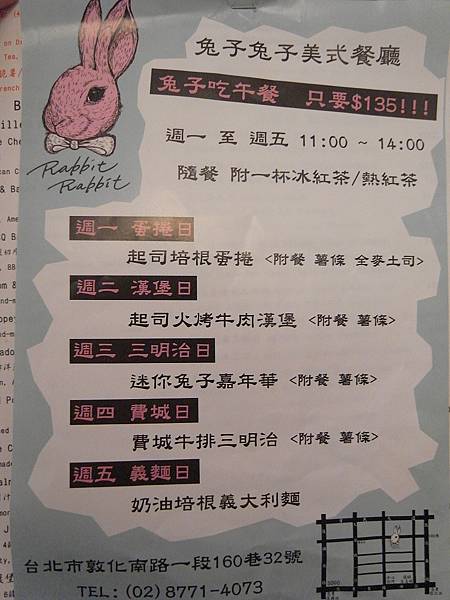 Rabbit
Rabbit
兔子兔子美式餐廳
兔子吃午餐 只要$135!!!
週一 至 週五 11:00 ~ 14:00
隨餐 附一杯冰紅茶/熱紅茶
週一 蛋捲日
起司培根蛋捲 <附餐 薯條 全麥土司>
週二 漢堡日
起司火烤牛肉漢堡 <附餐 薯條>
週三 三明治日
迷你兔子嘉年華 <附餐 薯條>
週四 費城日
費城牛排三明治 <附餐 薯條>
週五 義麵日
奶油培根義大利麵
台北市敦化南路一段160巷32號
TEL: (02) 8771-4073